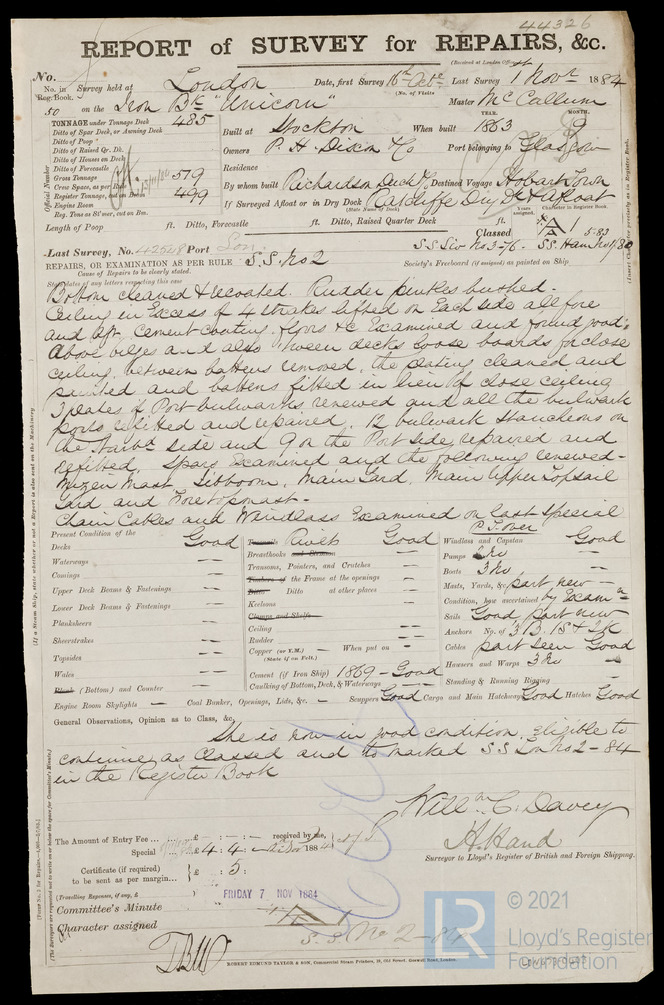 44326
REPORT of SURVEY for REPAIRS, &c.
(Received at London Office
No.
No. in Reg. Book.
Survey held at London Date, first Survey 16th Octr Last Survey 1 Novr 1884
(No. of Visits
50 on the Iron Bk "Unicorn" Master McCallum
TONNAGE under Tonnage Deck 485
Ditto of Spar Deck, or Awning Deck
Ditto of Poop
Ditto of Raised Qr. Dk.
Ditto of Houses on Deck
Ditto of Forecastle
Gross Tonnage 579
Crew Space, as per Rule
Register Tonnage, 499
Engine Room
Reg. Tons as St'mer, cut on Bea.
Official Number
Built at Stockton When built YEAR. 1863 MONTH. 9
Owners P. H. Dixon & Co Port belonging to Glasgow
Residence
By whom built Richardson Duck & Co Destined Voyage Hobart Town
If Surveyed Afloat or in Dry Dock Ratcliffe Dry Dk & Afloat
(State Name of Dock)
Years assigned. Character in Register Book.
Length of Poop ft. Ditto, Forecastle ft. Ditto, Raised Quarter Deck ft.
Classed A 1 5-83
Last Survey, No. 42528 Port Lon. S.S. Liv No 3-76. S.S. Ham No 1/80
REPAIRS, OR EXAMINATION AS PER RULE S.S. No 2
Society's Freeboard (if assigned) as painted on Ship
Cause of Repairs to be clearly stated.
State dates of any letters respecting this case
Bottom cleaned & recoated. Rudder pintles bushed.
Ceiling in Excess of 4 strakes lifted on Each side all fore
and aft. Cement coating, floors &c Examined and found good:
Above bilges and also 'tween decks loose boards for close
ceiling between battens removed, the plating cleaned and
painted and battens fitted in lieu of close ceiling
3 plates of Port bulwarks renewed and all the bulwark
ports refitted and repaired. 12 bulwark stauncheons on
the Starbd side and 9 on the Port side, repaired and
refitted. Spars Examined and the following renewed-
Mizen Mast, Jibboom, Main Yard, Main Upper Topsail
Yard and Foretopmast-
Chain Cables and Windlass Examined on last Special
P.T. over
Present Condition of the
Decks Good
Waterways —
Comings —
Upper Deck Beams & Fastenings —
Lower Deck Beams & Fastenings —
Planksheers —
Sheerstrakes —
Topsides —
Wales —
(Bottom) and Counter —
Engine Room Skylights —
Rivets Good
Breasthooks —
Transoms, Pointers, and Crutches —
of the Frame at the openings —
Ditto at other places —
Keelsons —
Clamps and Shelfs
Ceiling —
Rudder —
Copper (or Y.M.) — When put on •
(State if on Felt.)
Cement (if Iron Ship) 1869 - Good
Caulking of Bottom, Deck, & Waterways —
Coal Bunker, Openings, Lids, &c. — Scuppers Good Cargo and Main Hatchways Good Hatches Good
Windlass and Capstan Good
Pumps 2 No —
Boats 3 No —
Masts, Yards, &c. part new —
Condition, how ascertained by Examn
Sails Good part new
Anchors No. of 3 B. 1 S & 2 K
Cables part seen Good
Hausers and Warps 3 No —
Standing & Running Rigging —
General Observations, Opinion as to Class, &c.
She is now in good condition, eligible to
continue as Classed and to marked S S Lon No 2-84
in the Register Book
Willm C. Davey
H. Hand
Surveyor to Lloyd's Register of British and Foreign Shipping.
The Amount of Entry Fee ... £ : - : - received by me,
Special ... £ 4 : 4 : - 188
Certificate (if required) £ : 5 :
to be sent as per margin...
(Travelling Expenses, if any, £
Committee's Minute FRIDAY 7 NOV 1884
Character assigned A 1
S.S. No 2-84
ROBERT EDMUND TAYLOR & SON, Commercial Steam Printers, 19, Old Street, Goswell Road, London.
(If a Steam Ship, state whether or not a Report is also sent on the Machinery
LR
© 2021
Lloyd's Register
Foundation